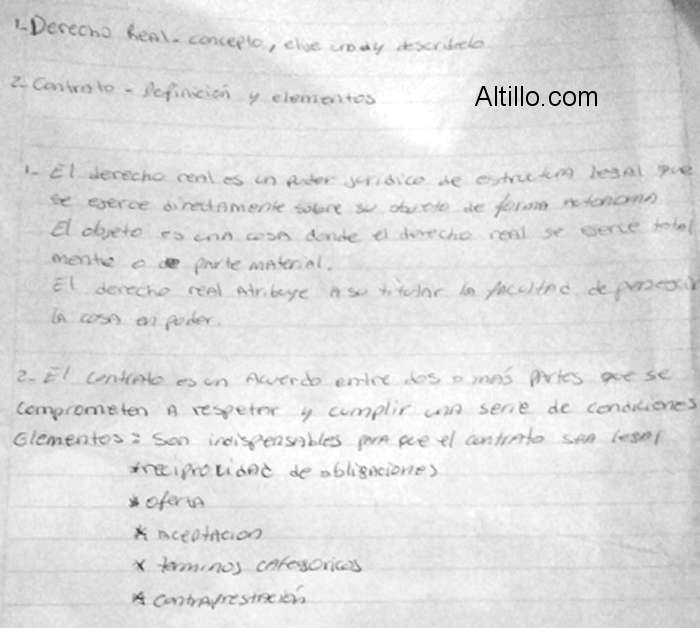 1-Derecho Real- concepto, elije uno y describelo
2- Contrato - Definición y elementos
Altillo.com
1- El derecho real es un poder juridico de estructura legal que
se ejerce directamente sobre su objeto de forma autonoma
El objeto es una cosa donde el derecho real se ejerce total
mente o de parte material.
El derecho real atribuye a su titular la facultad de perseguir
la cosa en poder.
2- El contrato es un Acuerdo entre dos o más partes que se
comprometen A respetar y cumplir una serie de condiciones
Elementos: Son indispensables para que el contrato sea legal
*reciprocidad de obligaciones
* oferta
* aceptacion
* terminos categoricos
* contraprestación